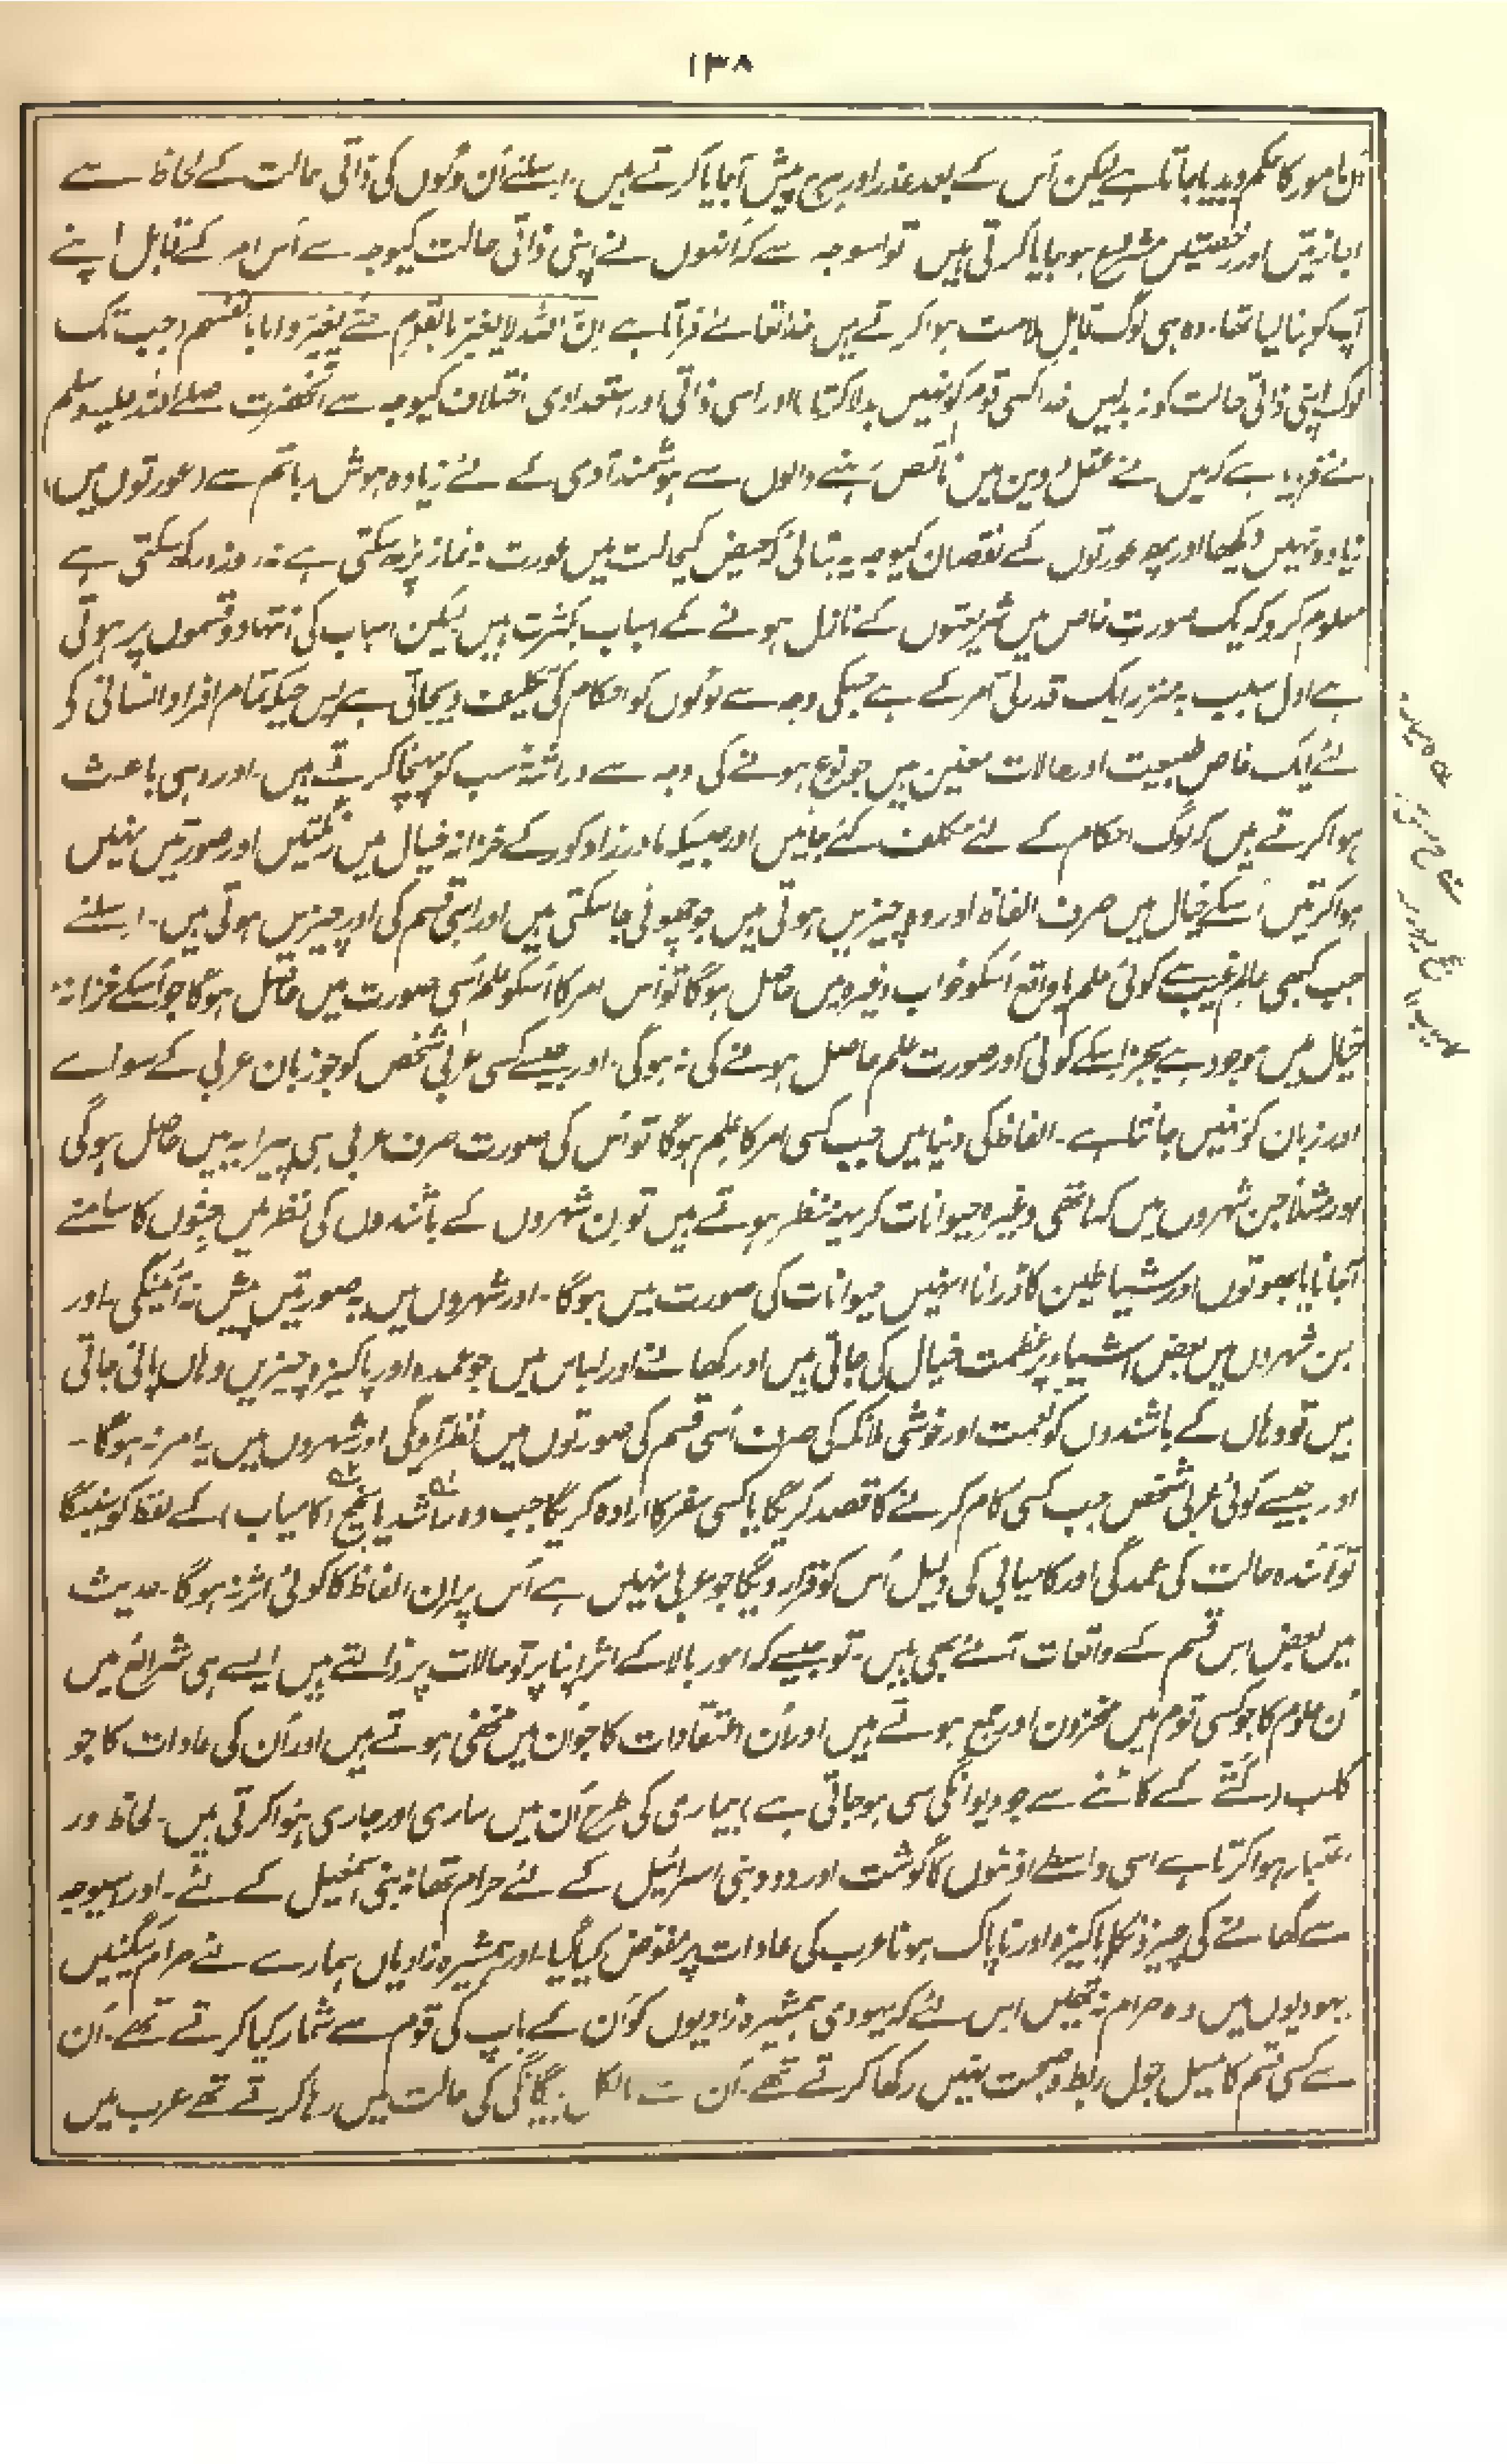 ۱۳۸
اُن امور کا حکم دیدیا جاتا ہے لیکن اُس کے بعد عذر اور ہرج پیش آجایا کرتے ہیں۔ اسلئے اُن لوگوں کی ذاتی حالت کے لحاظ سے
اجازتیں اور رخصتیں مشروع ہوجایا کرتی ہیں تو اسوجہ سے کہ اُنہوں نے اپنی ذاتی حالت کیوجہ سے اُس امر کے قابل اپنے
آپ کو بنا لیا تھا۔ وہ ہی لوگ قابل ملامت ہوا کرتے ہیں خدا تعالےٰ فرماتا ہے اِنَّ اللہ لا یغیر ما بقوم حتےٰ یغیروا ما بانفسہم (جب تک
لوگ اپنی ذاتی حالت کو نہ بدلیں خدا کسی قوم کو نہیں بدلا کرتا) اور اسی ذاتی اور استعدادی اختلاف کیوجہ سے آنحضرت صلے اللہ علیہ وسلم
نے فرمایا ہے کہ میں نے عقل و دین میں ناقص رہنے والوں سے ہوشمند آدمی کے لئے زیادہ ہوش ربا تم سے (عورتوں میں)
زیادہ نہیں دیکھا اور پھر عورتوں کے نقصان کیوجہ یہ بتائی کہ حیض کیحالت میں عورت نہ نماز پڑھ سکتی ہے نہ روزہ رکھ سکتی ہے
معلوم کرو کہ ایک صورت خاص میں شریعتوں کے نازل ہونے کے اسباب بکثرت ہیں لیکن اسباب کی انتہا دو قسموں پر ہوتی
ہے اول سبب بہ منزلہ ایک قدرتی امر کے ہے جسکی وجہ سے لوگوں کو احکام کی تکلیف دیجاتی ہے پس جبکہ تمام افراد انسانی کی
لئے ایک خاص طبیعت اور حالات معین ہیں جو نوع ہونے کی وجہ سے وراثۃً سب کو پہنچا کرتے ہیں۔ اور وہی باعث
ہوا کرتے ہیں کہ لوگ احکام کے لئے مکلف کئے جائیں اور جیسیکہ مادرزاد کور کے خزانہ خیال میں رنگتیں اور صورتیں نہیں
ہوا کرتیں اُسکے خیال میں صرف الفاظ اور وہ چیزیں ہوتی ہیں جو چھوئی جاسکتی ہیں اور اسی قسم کی اور چیزیں ہوتی ہیں۔ اسلئے
جب کبھی عالم غیب سے کوئی علم یا واقع اُسکو خواب وغیرہ میں حاصل ہوگا تو اُس امر کا اُسکو علم اُسی صورت میں حاصل ہوگا جو اُسکے خزانۂ
خیال میں موجود ہے بجز اسکے کوئی اور صورت علم حاصل ہونے کی نہ ہوگی۔ اور جیسے کسی عربی شخص کو جو زبان عربی کے سوائے
اور زبان کو نہیں جانتا ہے۔ الفاظ کی دنیا میں جب کسی امر کا علم ہوگا تو اُس کی صورت صرف عربی ہی پیرایہ میں حاصل ہوگی
اور مثلاً جن شہروں میں کہ ہاتھی وغیرہ حیوانات کریہ منظر ہوتے ہیں تو ان شہروں کے باشندوں کی نظر میں جنّوں کا سامنے
آجانا یا بھوتوں اور شیاطین کا ڈرانا انہیں حیوانات کی صورت میں ہوگا۔ اور شہروں میں یہ صورتیں پیش نہ آئینگی۔ اور
جن شہروں میں بعض اشیاء پر عظمت خیال کی جاتی ہیں اور کھانے اور لباس میں جو عمدہ اور پاکیزہ چیزیں وہاں پائی جاتی
ہیں تو وہاں کے باشندوں کو نعمت اور خوشی ملائکہ کی صرف اُسی قسم کی صورتوں میں نظر آویگی اور شہروں میں یہ امر نہ ہوگا۔
اور جیسے کوئی عربی شخص جب کسی کام کرنے کا قصد کریگا یا کسی سفر کا ارادہ کریگا جب وہ راشد یا نجیح (کامیاب) کے لفظ کو سنیگا
تو آئندہ حالت کی عمدگی اور کامیابی کی دلیل اُس کو قرار دیگا جو عربی نہیں ہے اُس پر ان الفاظ کا کوئی اثر نہ ہوگا۔ حدیث
میں بعض اس قسم کے واقعات آئے بھی ہیں۔ تو جیسے کہ امور بالا کے اثر اپنا پرتو حالات پر ڈالتے ہیں ایسے ہی شرائع میں
اُن علوم کا جو کسی قوم میں مخزون اور جمع ہوتے ہیں اور اُن اعتقادات کا جو اُن میں مخفی ہوتے ہیں اور اُن کی عادات کا جو
کلب (کتے کے کاٹنے سے جو دیوانگی سی ہوجاتی ہے) بیماری کی طرح اُن میں ساری اور جاری ہوا کرتی ہیں۔ لحاظ اور
اعتبار ہوا کرتا ہے اسی واسطے اونٹوں کا گوشت اور دودھ بنی اسرائیل کے لئے حرام تھا نہ بنی اسمٰعیل کے لئے۔ اور اسیوجہ
سے کھانے کی چیزونکا پاکیزہ اور ناپاک ہونا عرب کی عادات پر مفوض کیا گیا۔ اور ہمشیرہ زادیاں ہمارے لئے حرام کیگئیں
یہودیوں میں وہ حرام نہ تھیں اس لئے کہ یہودی ہمشیرہ زادیوں کو اُن کے باپ کی قوم سے شمار کیا کرتے تھے۔ اُن
سے کسی قسم کا میل جول ربط و صحبت نہیں رکھا کرتے تھے۔ اُن سے بالکل بیگانگی کی حالت میں رہا کرتے تھے عرب میں